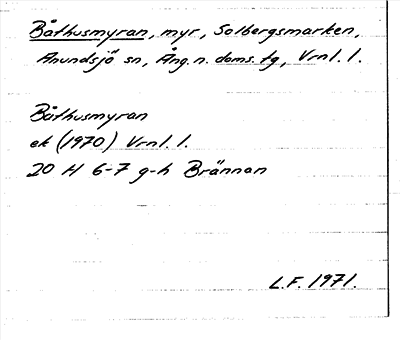 Båthusmyran, myr, Solbergsmarken,
Anundsjö sn, Ång. n. doms. tg, Vrnl. l.
Båthusmyran
ek (1970) Vrnl. l.
20 H 6-7 g-h Brännan
L.F. 1971.